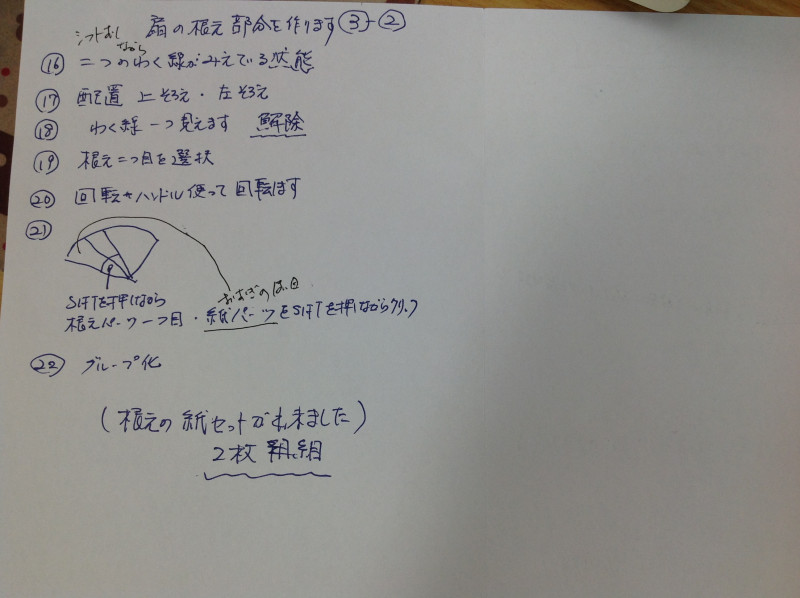 扇の根元部分を作ります③-②
シフトおしながら
⑯ 二つのわく線がみえている状態
⑰ 配置 上そろえ・左そろえ
⑱ わく線一つ見えます 解除
⑲ 根元二つ目を選択
⑳ 回転ハンドル使って回転ます
㉑
おおぎの
SIFTを押しながら
根元パーツ一つ目・紙パーツをSIFTを押しながらクリック
㉒ グループ化
(根元の紙セットが出来ました)
2枚組